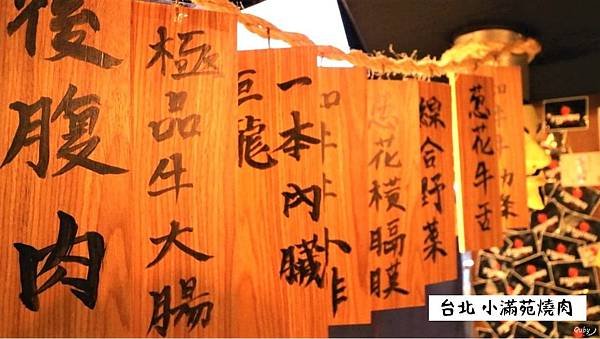 後腹肉
極品牛大腸
巨龍
一本內臟
蔥花橫膈膜
綜合野菜
蔥花牛舌
台北 小滿苑燒肉
Quby_J